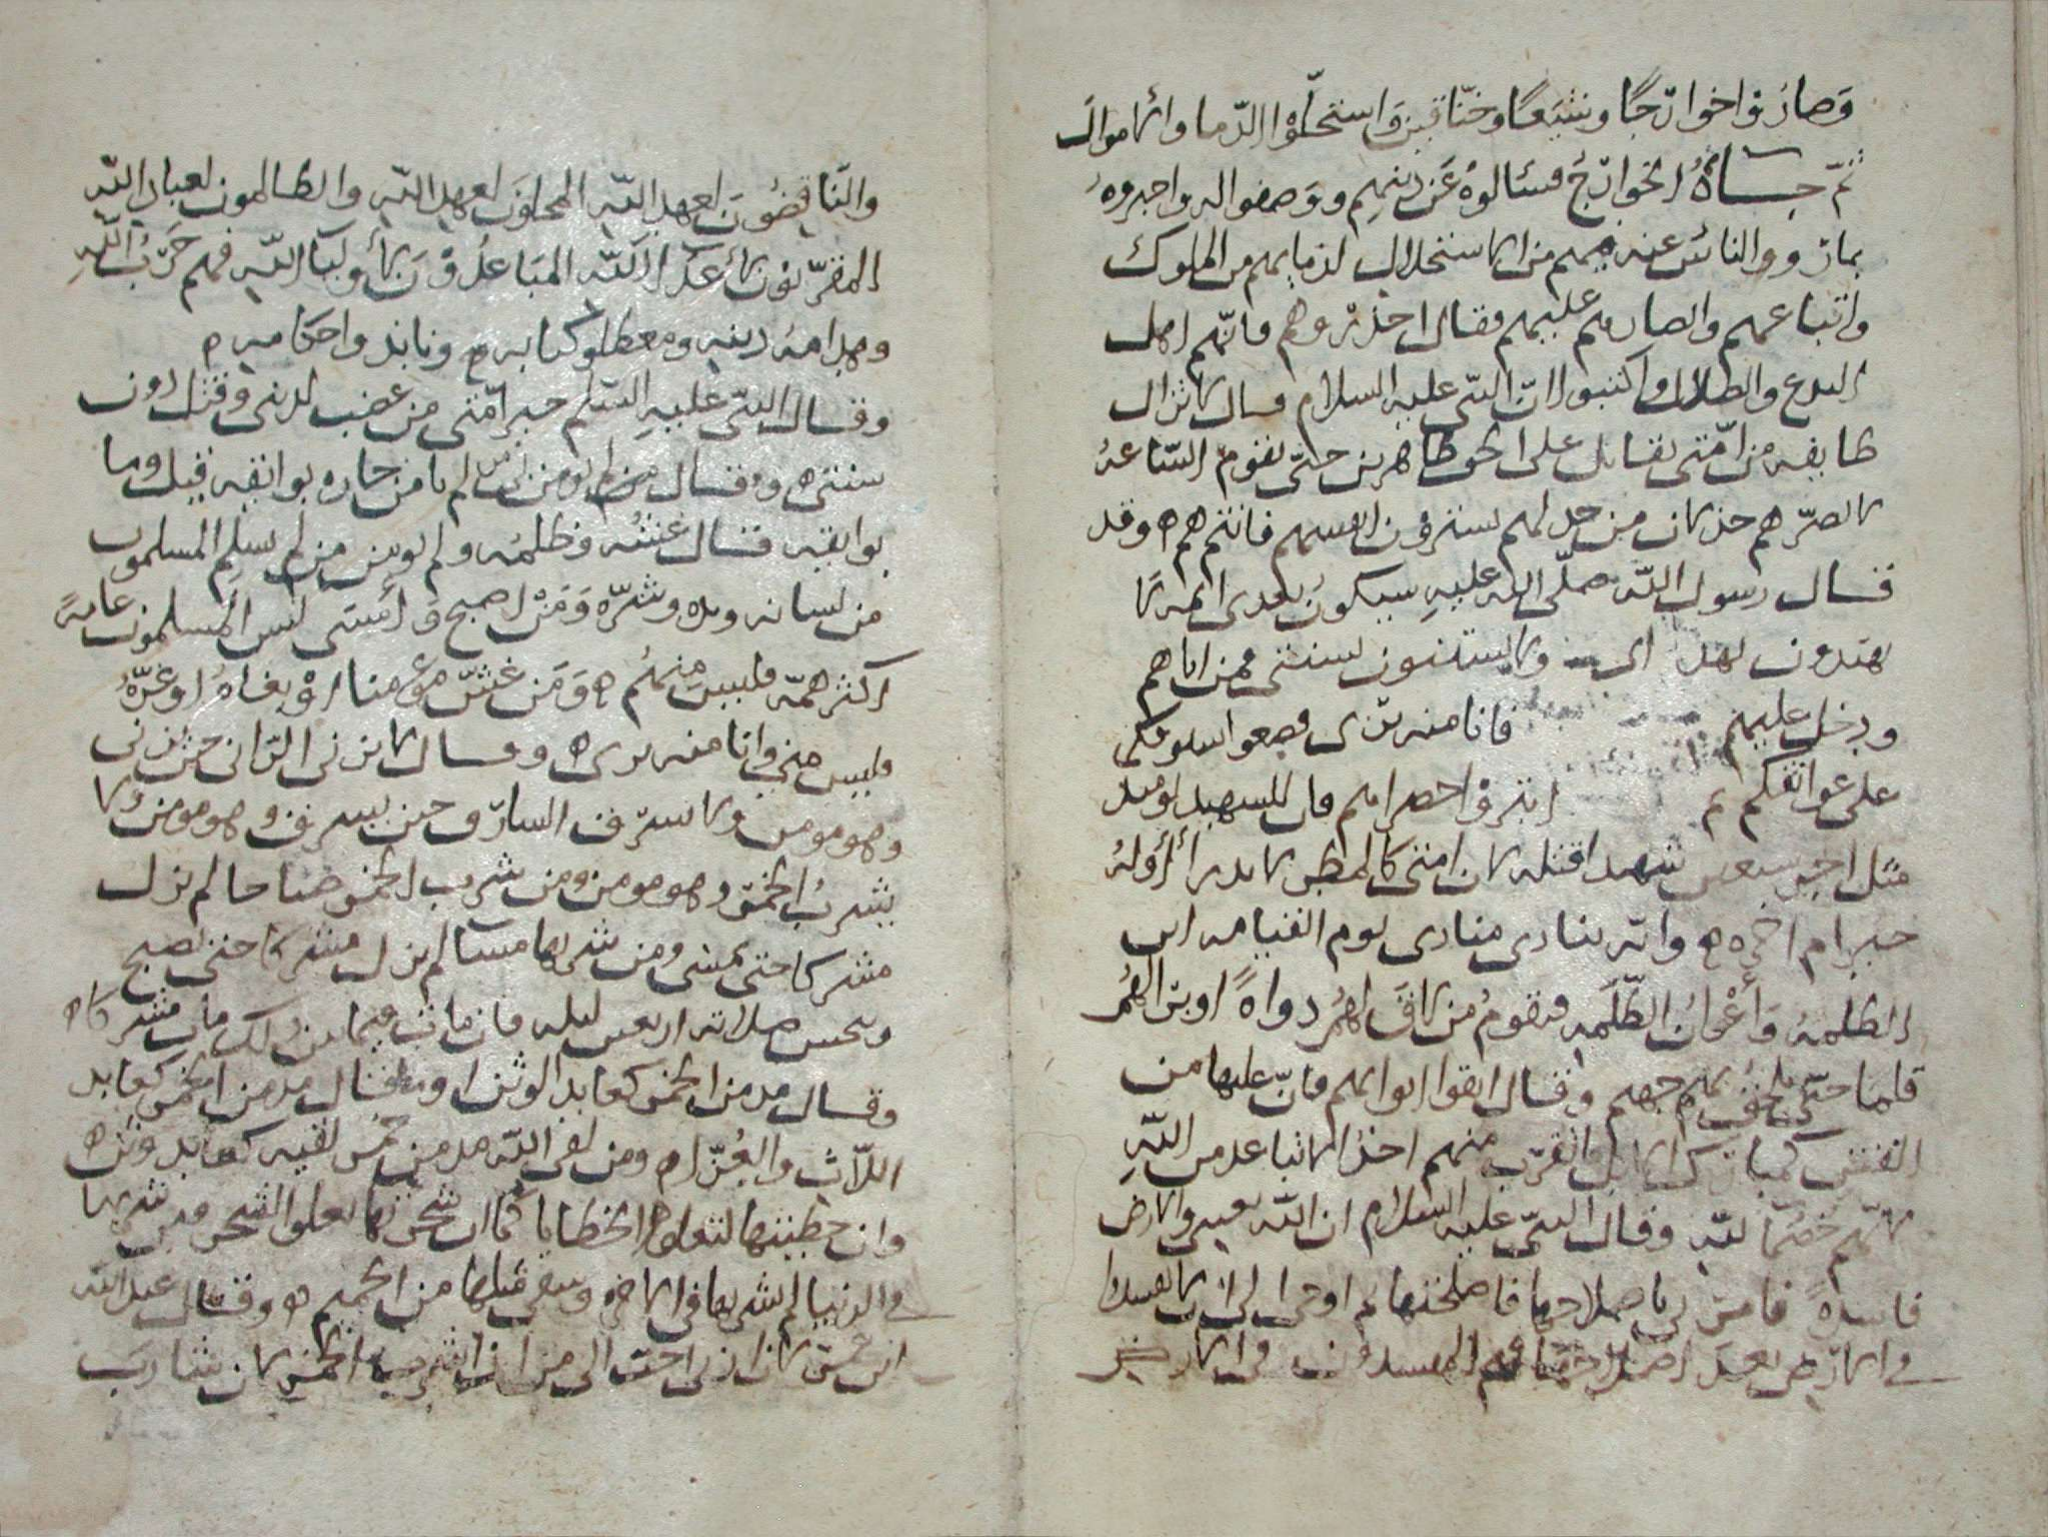 وَصارُوا خوارجًا وشيَعًا وخنّاقين واستحلّوا الدّما والاموال
ثمّ جاءهُ الخوارجُ فسالوهُ عَن دينهم ووصفوا له واخبروهُ
بما رووا الناسُ عنه من الاستحلال لدمايهم من الملوك
واتباعهم وانصارهم عليهم فقال احذروهم فانّهم اهل
البدع والضلال واكتبوا انّ النبّى عليه السلام قال لا تزال
طايفه من امّتى تقاتل على الحق ظاهرين حتّى تقوم السّاعهُ
لا يضرّهم خذلان من خذلهم يشترون انفسهم فانتم هم ه وقد
قال رسول اللّه صلّى الله عليهِ سيكون بعدى ايمه لا
يهتدون بهداى ولا يستنون بسنتى فمن اتاهم
ودخل عليهم فانا منه برى فضعوا سيوفكم
على عواتقكم ثم حضراهم فان للشهيد يوميذ
مثل اجر سبعين شهيدا قتله لان امتى كالمطر لا يدرا أأوله
خير ام اخره ه وانه ينادى منادى يوم القيامه اين
الظلمهُ وَأعْوانُ الظّلَمهِ فيقومُ من لاقَ لهُم دواهً او برا لهُم
قلما حتّى جهنم وقال اتقوا ابوابهم فانّ عليها من
الفتن كمبارك الابل والقرب منهم احذ لا تباعد من اللّهِ
لانّهم خصما للّه وقال النبّى عليه السلام ان اللّه بعثنى والارض
فاسدهً فامرنى باصلاحها فاصلحتها ثم اوحى الىّ ان لا تفسدوا
فى الارض بعدَ اصلاحها فهم المفسدون فى الارض
والنّاقضُونَ لعهد اللّه المحلونَ لعهد اللّه والظالمون لعباد اللّه
المقرّبُون لأعدآ اللّه المبَاعدُوْن لأوليآ اللّه فهم حَرْبُ اللّهِ
وهدامهُ دينه ومعطلو كتابه ه ونابذوا حكامه ه
وقال النبّى عليهِ السّلم خير امّتى من غضب لدينى وقتل دون
سنتى ه وقال من لم يامن جاره بوايقه قيل وما
بوايقه قال غشّه وظلمه ولم يومن من لم يسلم المسلمون
من لسانه ويده وشرّه وَمَن اصبح وَأمسَى ليس المسلمون عامهً
اكثر همّه فليس منهُم ه وَمَن غشّ مؤمنا اوْ بغاهُ او غرّهُ
فليس منى وانا منه برى ه وقال لا يزنى الزّانى حين يزنى
وهو مومن ولا يسرق السارق حين يسرق وهو مومن ولا
يشربُ الخمرَ وهو مومن ومن شرب الخمر صباحا لم يزل
مشركا حتى يمسى ومن شربها مسآ لم يزل مشركا حتى يصبح
وبخس صلاته اربعين ليله فان مات فيما بين ذلك مات مشركا ه
وقال مدمن الخمر كعابد الوثن ه وقال مدمن الخمر كعابد
اللّات والعُزّا ه ومن لقى اللّه مدمن خمر لقيه كعابد وثن ه
وان خطيتها لتعلو الخطايا كما ان شجرتها تعلو الشجر فمن شربها
فى الدنيا لم يشربها فى الاخره وسقى مثلها من الحميم ه وقال عبد اللّه
ابن عمر لان ازنى احبّ الى من ان اشرب الخمر لان شارب